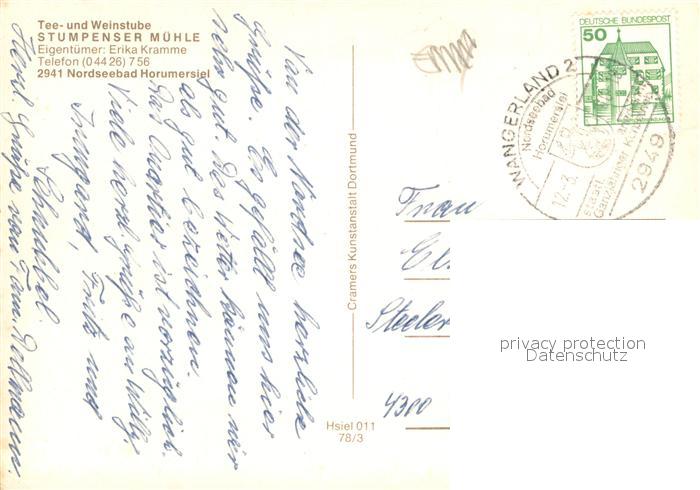 Tee- und Weinstube
STUMPENSER MÜHLE
Eigentümer: Erika Kramme
Telefon (0 44 26) 7 56
2941 Nordseebad Horumersiel
Von der Nordsee herzliche
Grüße. Es gefällt uns hier
sehr gut. Das Wetter können wir
als gut bezeichnen.
Das Quartier ist vorzüglich.
Viele herzl. Grüße an Willy,
Irmgard, Fritz und
Herzl. Grüße von Fam.
Cramers Kunstanstalt Dortmund
Hsiel 011
78/3
DEUTSCHE BUNDESPOST
50
WANGERLAND 2
Nordseebad
Horumersiel
12.-8.
staatl.
2949
Frau
El.
Steeler
4300
privacy protection
Datenschutz